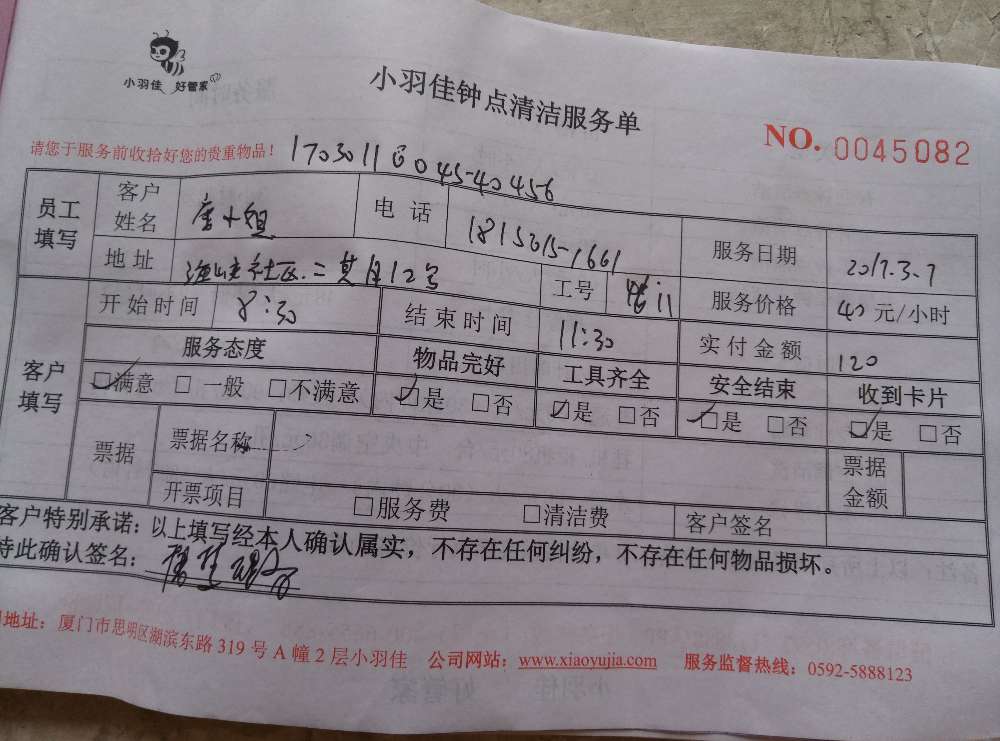 小羽佳 好管家
小羽佳钟点清洁服务单
NO. 0045082
请您于服务前收拾好您的贵重物品！
员工填写 客户姓名 唐小姐 电话 服务日期 2017.3.7
地址 二期12号 工号 服务价格 40 元/小时
客户填写 开始时间 8:30 结束时间 11:30 实付金额 120
服务态度 物品完好 工具齐全 安全结束 收到卡片
☑满意 □一般 □不满意 ☑是 □否 ☑是 □否 ☑是 □否 ☑是 □否
票据 票据名称 票据金额
开票项目 □服务费 □清洁费 客户签名
客户特别承诺：以上填写经本人确认属实，不存在任何纠纷，不存在任何物品损坏。
特此确认签名：
地址：厦门市思明区湖滨东路 319 号 A 幢 2 层小羽佳 公司网站：www.xiaoyujia.com 服务监督热线：0592-5888123